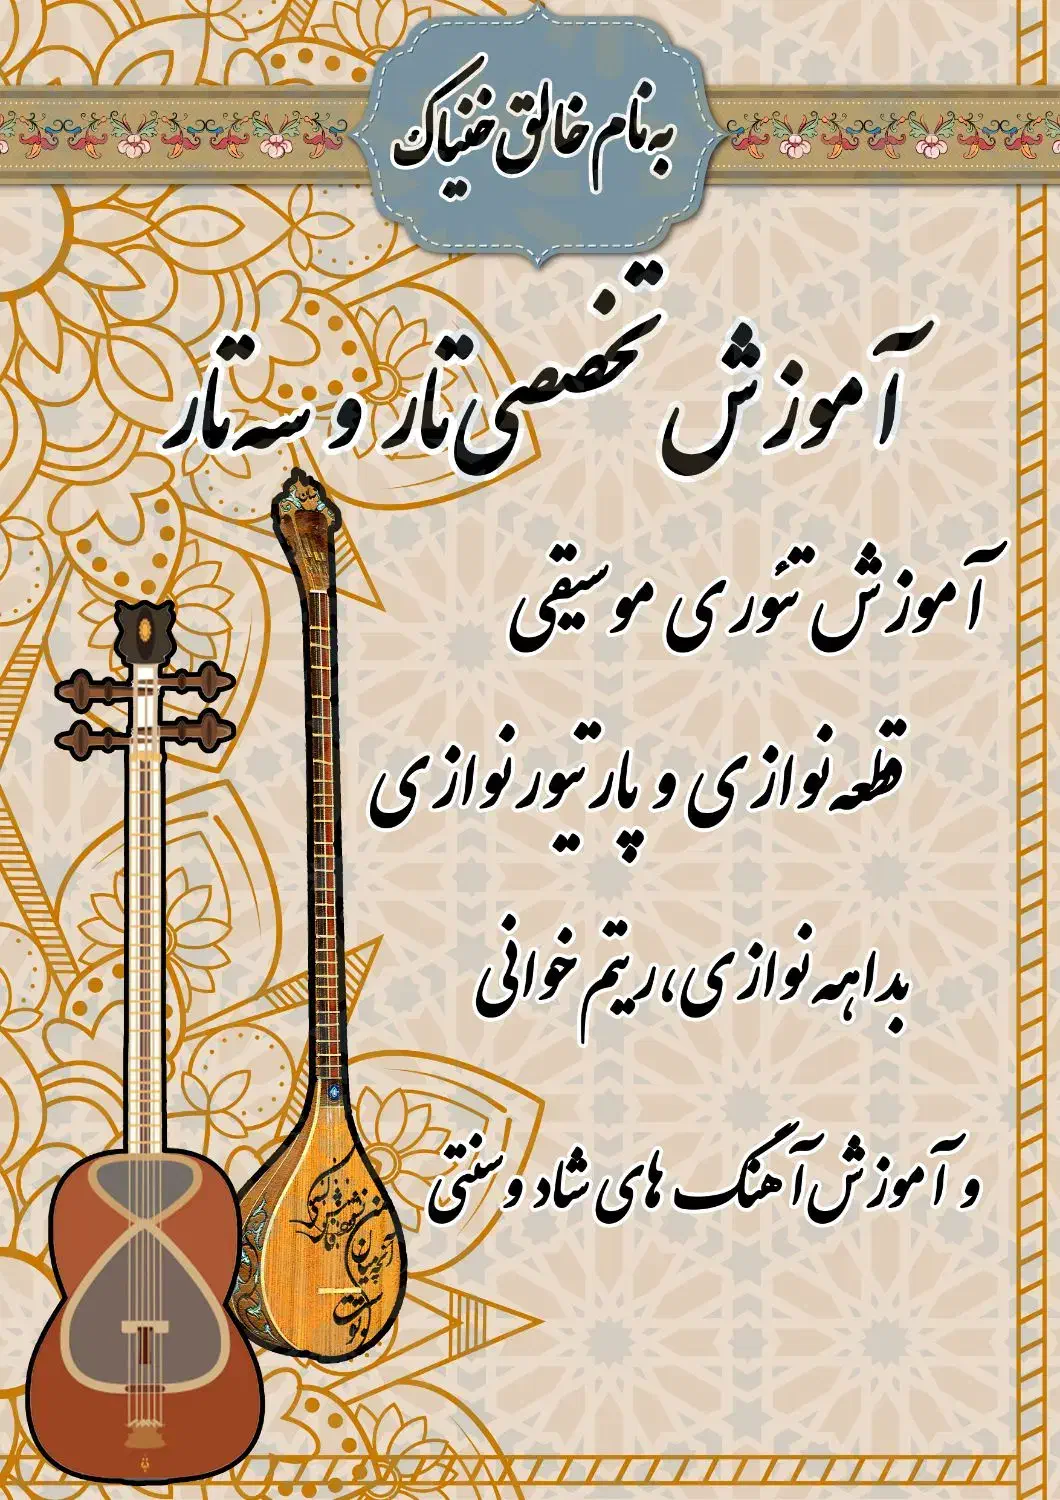 به نام خالق خنیاک
آموزش تخصصی تار و سه تار
آموزش تئوری موسیقی
قطعه نوازی و پارتیتور نوازی
بداهه نوازی، ریتم خوانی
و آموزش آهنگ های شاد و سنتی